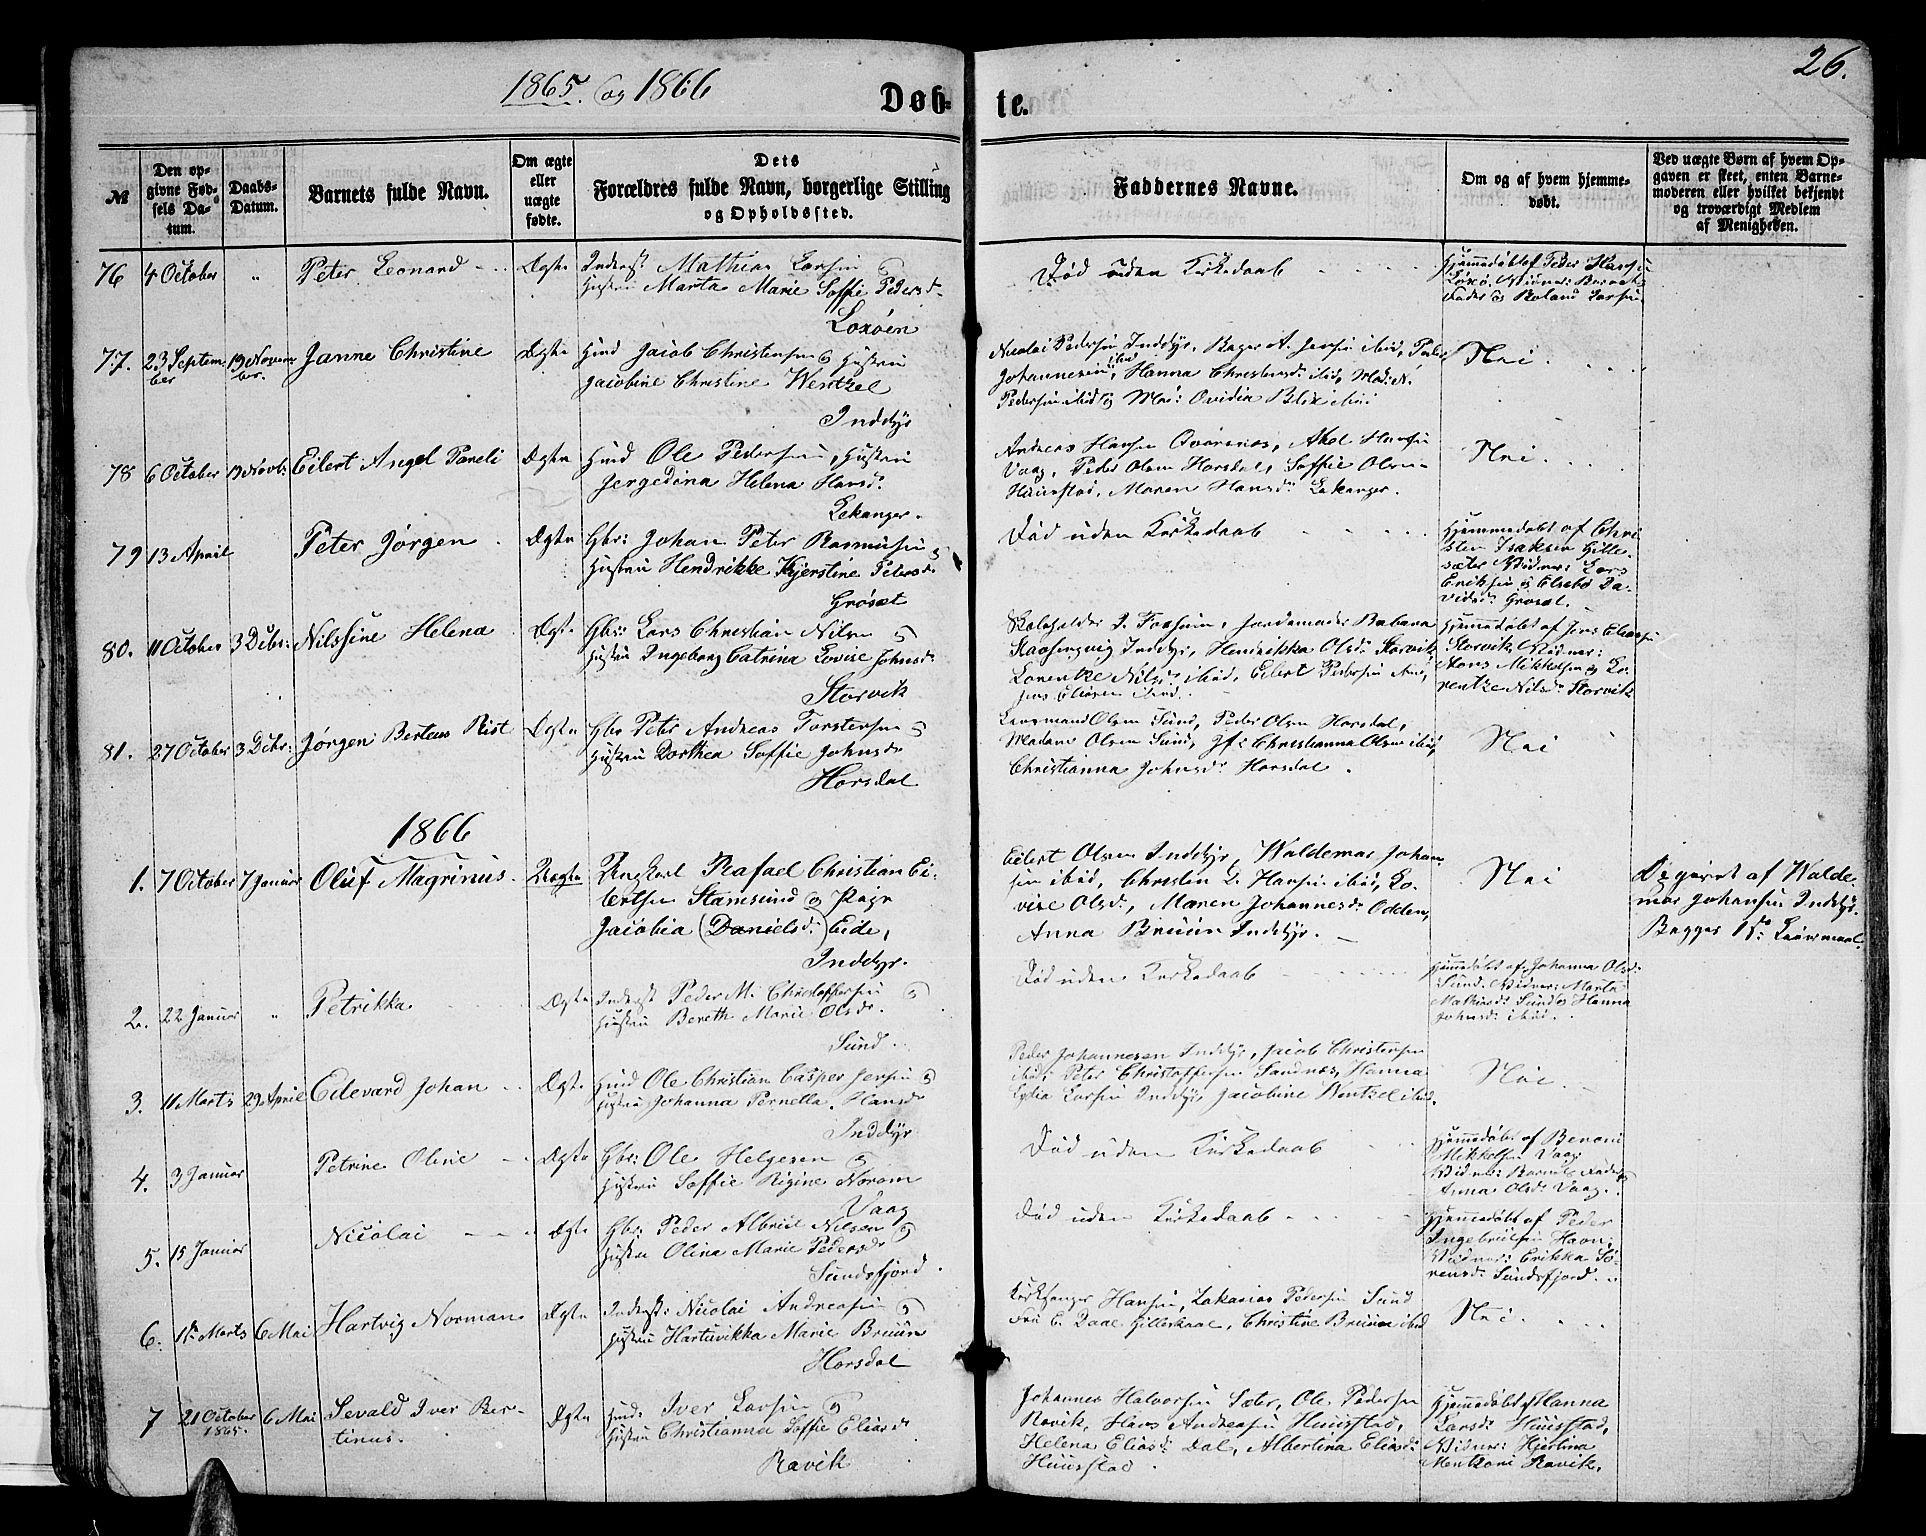 1865. og 1866
26.
Døb-
te.
№
Den op-
givne Fød-
sels Da-
tum.
Daabs-
Datum.
Barnets fulde Navn.
Om ægte
eller
uægte
fødte.
Dets
Forældres fulde Navn, borgerlige Stilling
og Opholdssted.
Faddernes Navne.
Om og af hvem hjemme-
døbt.
Ved uægte Børn af hvem Op-
gaven er skeet, enten Barne-
moderen eller hvilket bekjendt
og troværdigt Medlem
af Menigheden.
76 4 October " Peter Leonard Ægte Inderst: Mathias Larsen og
Hustru Marta Marie Soffie Pedersd:
Loxøen
Død uden Kirkedaab
Hjemmedøbt af Peder Hansen
Loxø. Vidner: Barnets
Fader og Roland Larsen
77. 23 Septem
ber 19 Novem
ber. Janne Christine Ægte Huusmd Jacob Christensen og Hustru
Jacobine Christine Wentzel
Inddyr
Nicolai Pedersen Inddyr, Bager A. Jensen ibid, Peder
Johannesen ibid, Hanna Christensd: ibid, Mad: N.
Pedersen ibid og Mad: Ovidia Blix ibid
Nei.
78 6 October 19 Novb: Eilert Angel Pareli Ægte Huusmd Ole Pedersen, Hustru
Jergedina Helena Hansd:
Lekanger.
Andreas Hansen Qvarenes, Axel Hansen
Vaag, Peder Olsen Horsdal, Soffie Olsen
Huunstad, Maren Hansd: Lekanger.
Nei.
79 13 April Peter Jørgen Ægte Gbr: Johan Peter Rasmusen og
Hustru Hendrikke Kjerstine Petersd:
Grøsæt
Død uden Kirkedaab
Hjemmedøbt af Chri
sten Isaksen Gille-
sæter Vidner: Lars
Eriksen og Elsebe Da-
vidsd: Grøsæt.
80. 11 October 3 Decbr: Nilssine Helena Ægte Gbr: Lars Christian Nilsen og
Hustru Ingeborg Catrina Lovise Johnsd:
Storvik
Skoleholder J. Fossum, Jordemoder Babara
Inddyr, Henrikka Olsd: Storvik,
Lorentze Nilsd: ibid, Eilert Pedersen
Jens Eliasen ibid.
Hjemmedøbt af Jens Eliassen
Storvik Vidner:
Hans Mikkelsen og Lo-
rentze Nilsd: Storvik
81. 27 October 3 Decbr: Jørgen Berteus Rist Ægte Gbr Peter Andreas Torstensen og
Hustru Dorthea Soffie Johnsd:
Horsdal
Lensmand Olsen Sund, Peder Olsen Horsdal,
Madam Olsen Sund, Jf: Christianna Olsen ibid,
Christianna Johnsd: Horsdal.
Nei
1866
1. 7 October 7 Januar Oluf Magrinus. Uægte Ungkarl Rafael Christian Ei-
lertsen Stamsund og Pige
Jacobia (Danielsd:) Eide,
Inddyr.
Eilert Olsen Inddyr, Waldemar Johan
sen ibid, Christen D. Hansen ibid, Lo-
vise Olsd:, Maren Johannesd: Odden,
Anna Bruun Inddyr.
Nei
Opgivet af Walde-
mar Johansen Inddyr.
Begges 1ste Leiermaal.
2. 22 Januar " Petrikka Ægte Inderst Peder M. Christoffersen og
Hustru Bereth Marie Olsd:
Sund.
Død uden Kirkedaab
Hjemmedøbt af Johanna Olsd:
Sund. Vidner: Marta
Mathiasd: Sund og Hanna
Johnsd: ibid.
3. 11 Marts 29 April Edevard Johan Ægte Huusmd Ole Christian Casper Jensen og
Hustru Johanna Pernella Hansd:
Inddyr
Peder Johannesen Inddyr, Jacob Christensen
ibid, Peter Christoffersen Sandnes, Hanna
Lydia Larsen Inddyr, Jacobine Wentzel ibid.
Nei.
4. 3 Januar Petrine Oline Ægte Gbr: Ole Helgesen og
Hustru Soffie Rigine Norom
Vaag
Død uden Kirkedaab
Hjemmedøbt af Benoni
Mikkelsen Vaag
Vidner: Barnets Fader og
Anna Olsd: Vaag.
5. 15 Januar Nicolai Ægte Gbr: Peder Albriet Nilsen og
Hustru Olina Marie Pedersd:
Sundsfjord.
Død uden Kirkedaab
Hjemmedøbt af Peder
Ingebrigtsen Havn.
Vidner: Erikka Sø-
rensd: Sundsfjord.
6. 1ste Marts 6 Mai Hartvig Norman Ægte Inderst: Nicolai Andreasen og
Hustru Hartuvikka Marie Bruun
Horsdal
Kirksanger Hansen, Zakarias Pedersen Sund
Fru C. Daae Gilleskaal, Christine Bruun ibid
Nei.
7 21 October
1865. 6 Mai Sevald Iver Ber-
tinus. Ægte Huusmd: Iver Larsen og
Hustru Christianna Soffie Eliasd:
Ravik
Johannes Halvorsen Sæter, Ole Pedersen
Ravik, Hans Andreasen Huunstad,
Helena Eliasd: Dal, Albertina Eliasd:
Huunstad.
Hjemmedøbt af Hanna
Larsd: Huunstad,
Vidner: Hjertina
Mentzoni Ravik.